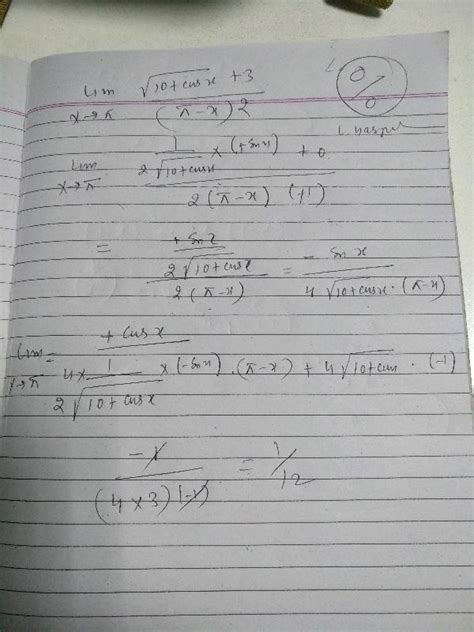 Lim √10+cosx +3 / (π-x)2
x→π
0/0
Lim 1/2√10+cosx × (+sinx) + 0 / 2(π-x) (+1)
x→π
= +sinx/2√10+cosx / 2(π-x) = - sinx / 4√10+cosx · (π-x)
Lim = +cosx / 4× 1/2√10+cosx ×(-sinx) · (π-x) + 4√10+cos · (-1)
x→π
-1 / (4×3)(-1) = 1/12